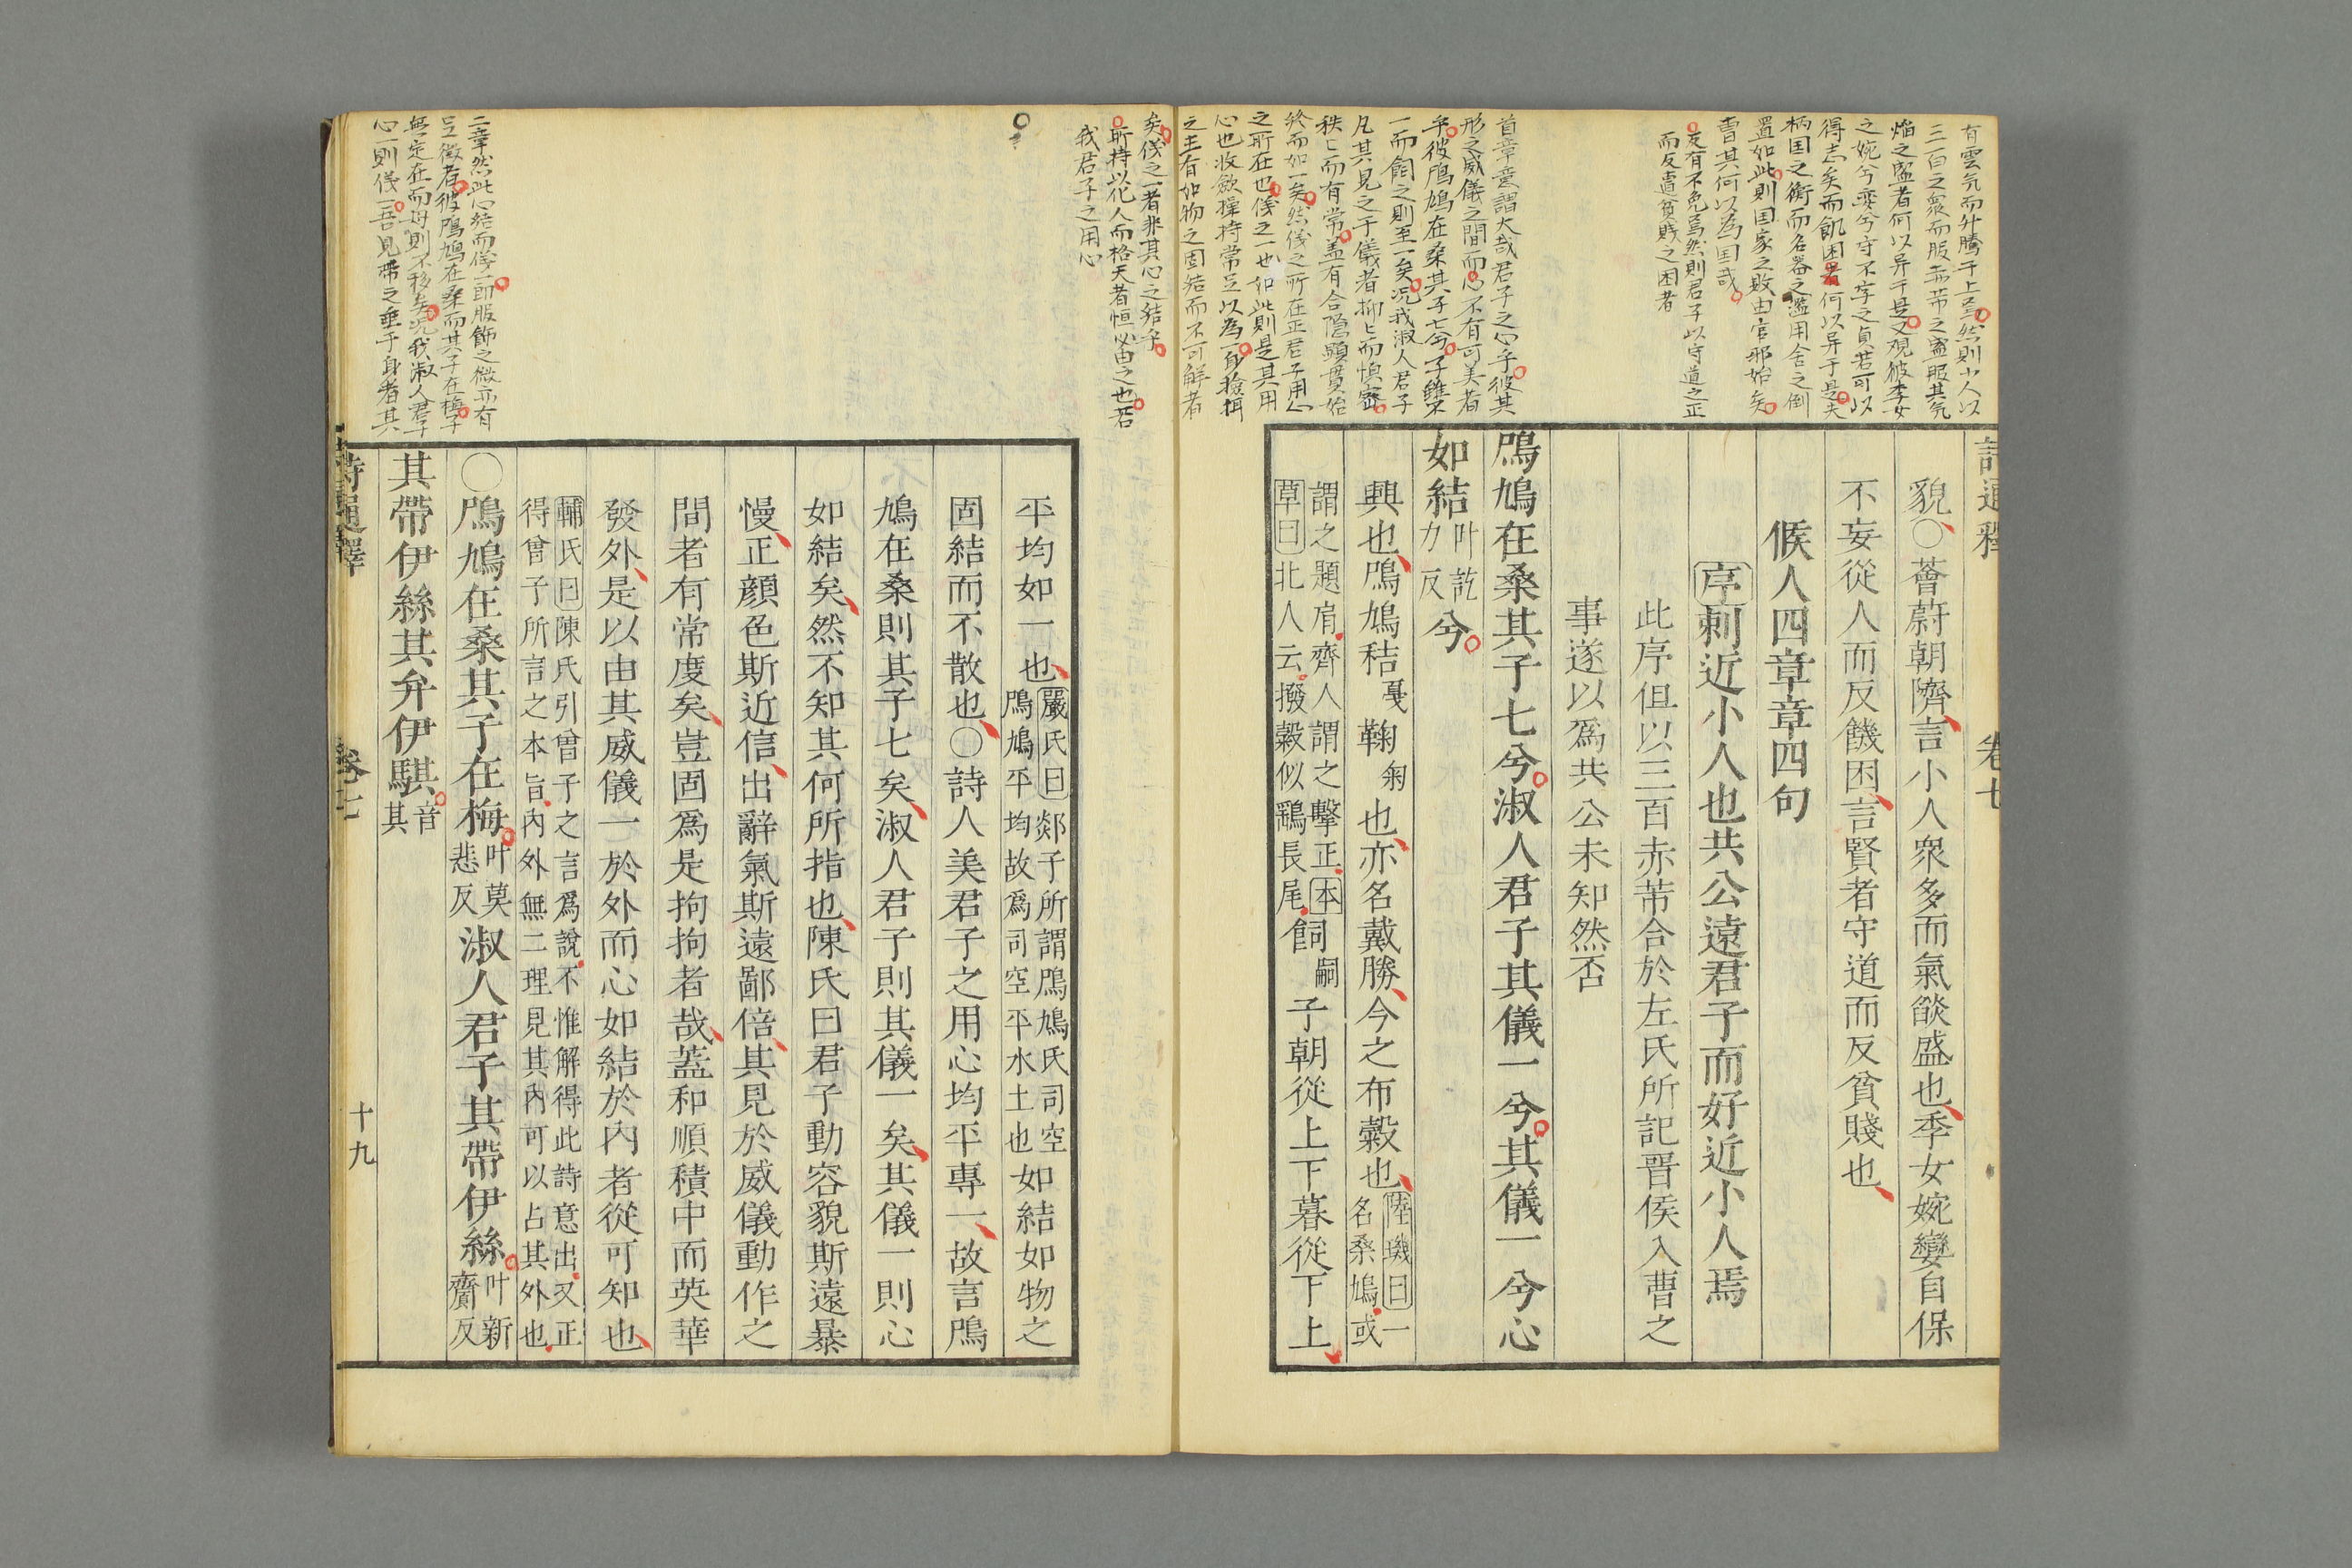 有雲気而升騰于上焉然則小人以
三百之衆而服赤芾之寵眼其気
焔之盛者何以异于是又观彼季女
之婉兮娈兮守不字之貞若可以
得志矣而飢困者何以异于是夫
柄国之衡而名器之濫用舍之倒
置如此則国家之敗由官邪始矣
曹其何以為国哉
而反遭貧賤之困者
首章意謂大哉君子之心乎彼其
形之威儀之間而心不有可美者
乎彼鳲鳩在桑其子七兮子雖不
一而飼之則至一矣况我淑人君子
凡其見之于儀者抑〻而慎密
秩〻而有常盖有合隐顕貫始
終而如一矣然儀之所在正君子用心
之所在也儀之一也如此則是其用
心也收歛操持常足以為一身撿押
之主有如物之固結而不可解者
矣儀之一者非其心之結乎
所持以化人而格天者恒必由之也若
我君子之用心
二章然此心結而儀一即服飾之微亦有
足徴者彼鳲鳩在桑而其子在梅子
無定在而母則不移矣况我淑人君子
心一則儀一吾見帶之垂于身者其
詩通釋 卷七
貌○薈蔚朝隮言小人衆多而氣燄盛也季女婉孌自保
不妄從人而反饑困言賢者守道而反貧賤也
候人四章章四句
序刺近小人也共公遠君子而好近小人焉
此序但以三百赤芾合於左氏所記晋侯入曹之
事遂以爲共公未知然否
鳲鳩在桑其子七兮淑人君子其儀一兮其儀一兮心
如結叶訖力反兮
興也鳲鳩秸戛鞠匊也亦名戴勝今之布穀也陸璣曰一名桑鳩或
謂之題肩齊人謂之擊正本草曰北人云撥穀似鷂長尾飼嗣子朝從上下暮從下上
平均如一也嚴氏曰郯子所謂鳲鳩氏司空鳲鳩平均故爲司空平水土也如結如物之
固結而不散也○詩人美君子之用心均平專一故言鳲
鳩在桑則其子七矣淑人君子則其儀一矣其儀一則心
如結矣然不知其何所指也陳氏曰君子動容貌斯遠暴
慢正顔色斯近信出辭氣斯遠鄙倍其見於威儀動作之
間者有常度矣豈固爲是拘拘者哉蓋和順積中而英華
發外是以由其威儀一於外而心如結於内者從可知也
輔氏曰陳氏引曾子之言爲說不惟解得此詩意出又正
得曾子所言之本旨内外無二理見其内可以占其外也
○鳲鳩在桑其子在梅叶莫悲反淑人君子其帶伊絲叶新齎反
其帶伊絲其弁伊騏音其
詩通釋 卷七 十九